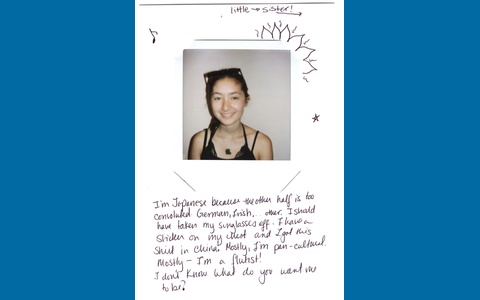 little → sister!
I'm Japanese because the other half is too
convoluted. German, Irish... other. I should
have taken my sunglasses off. I have a
sticker on my chest and I got this
shirt in China. Mostly, I'm pan-cultural.
Mostly - I'm a flutist!
I don't know what do you want me
to be?